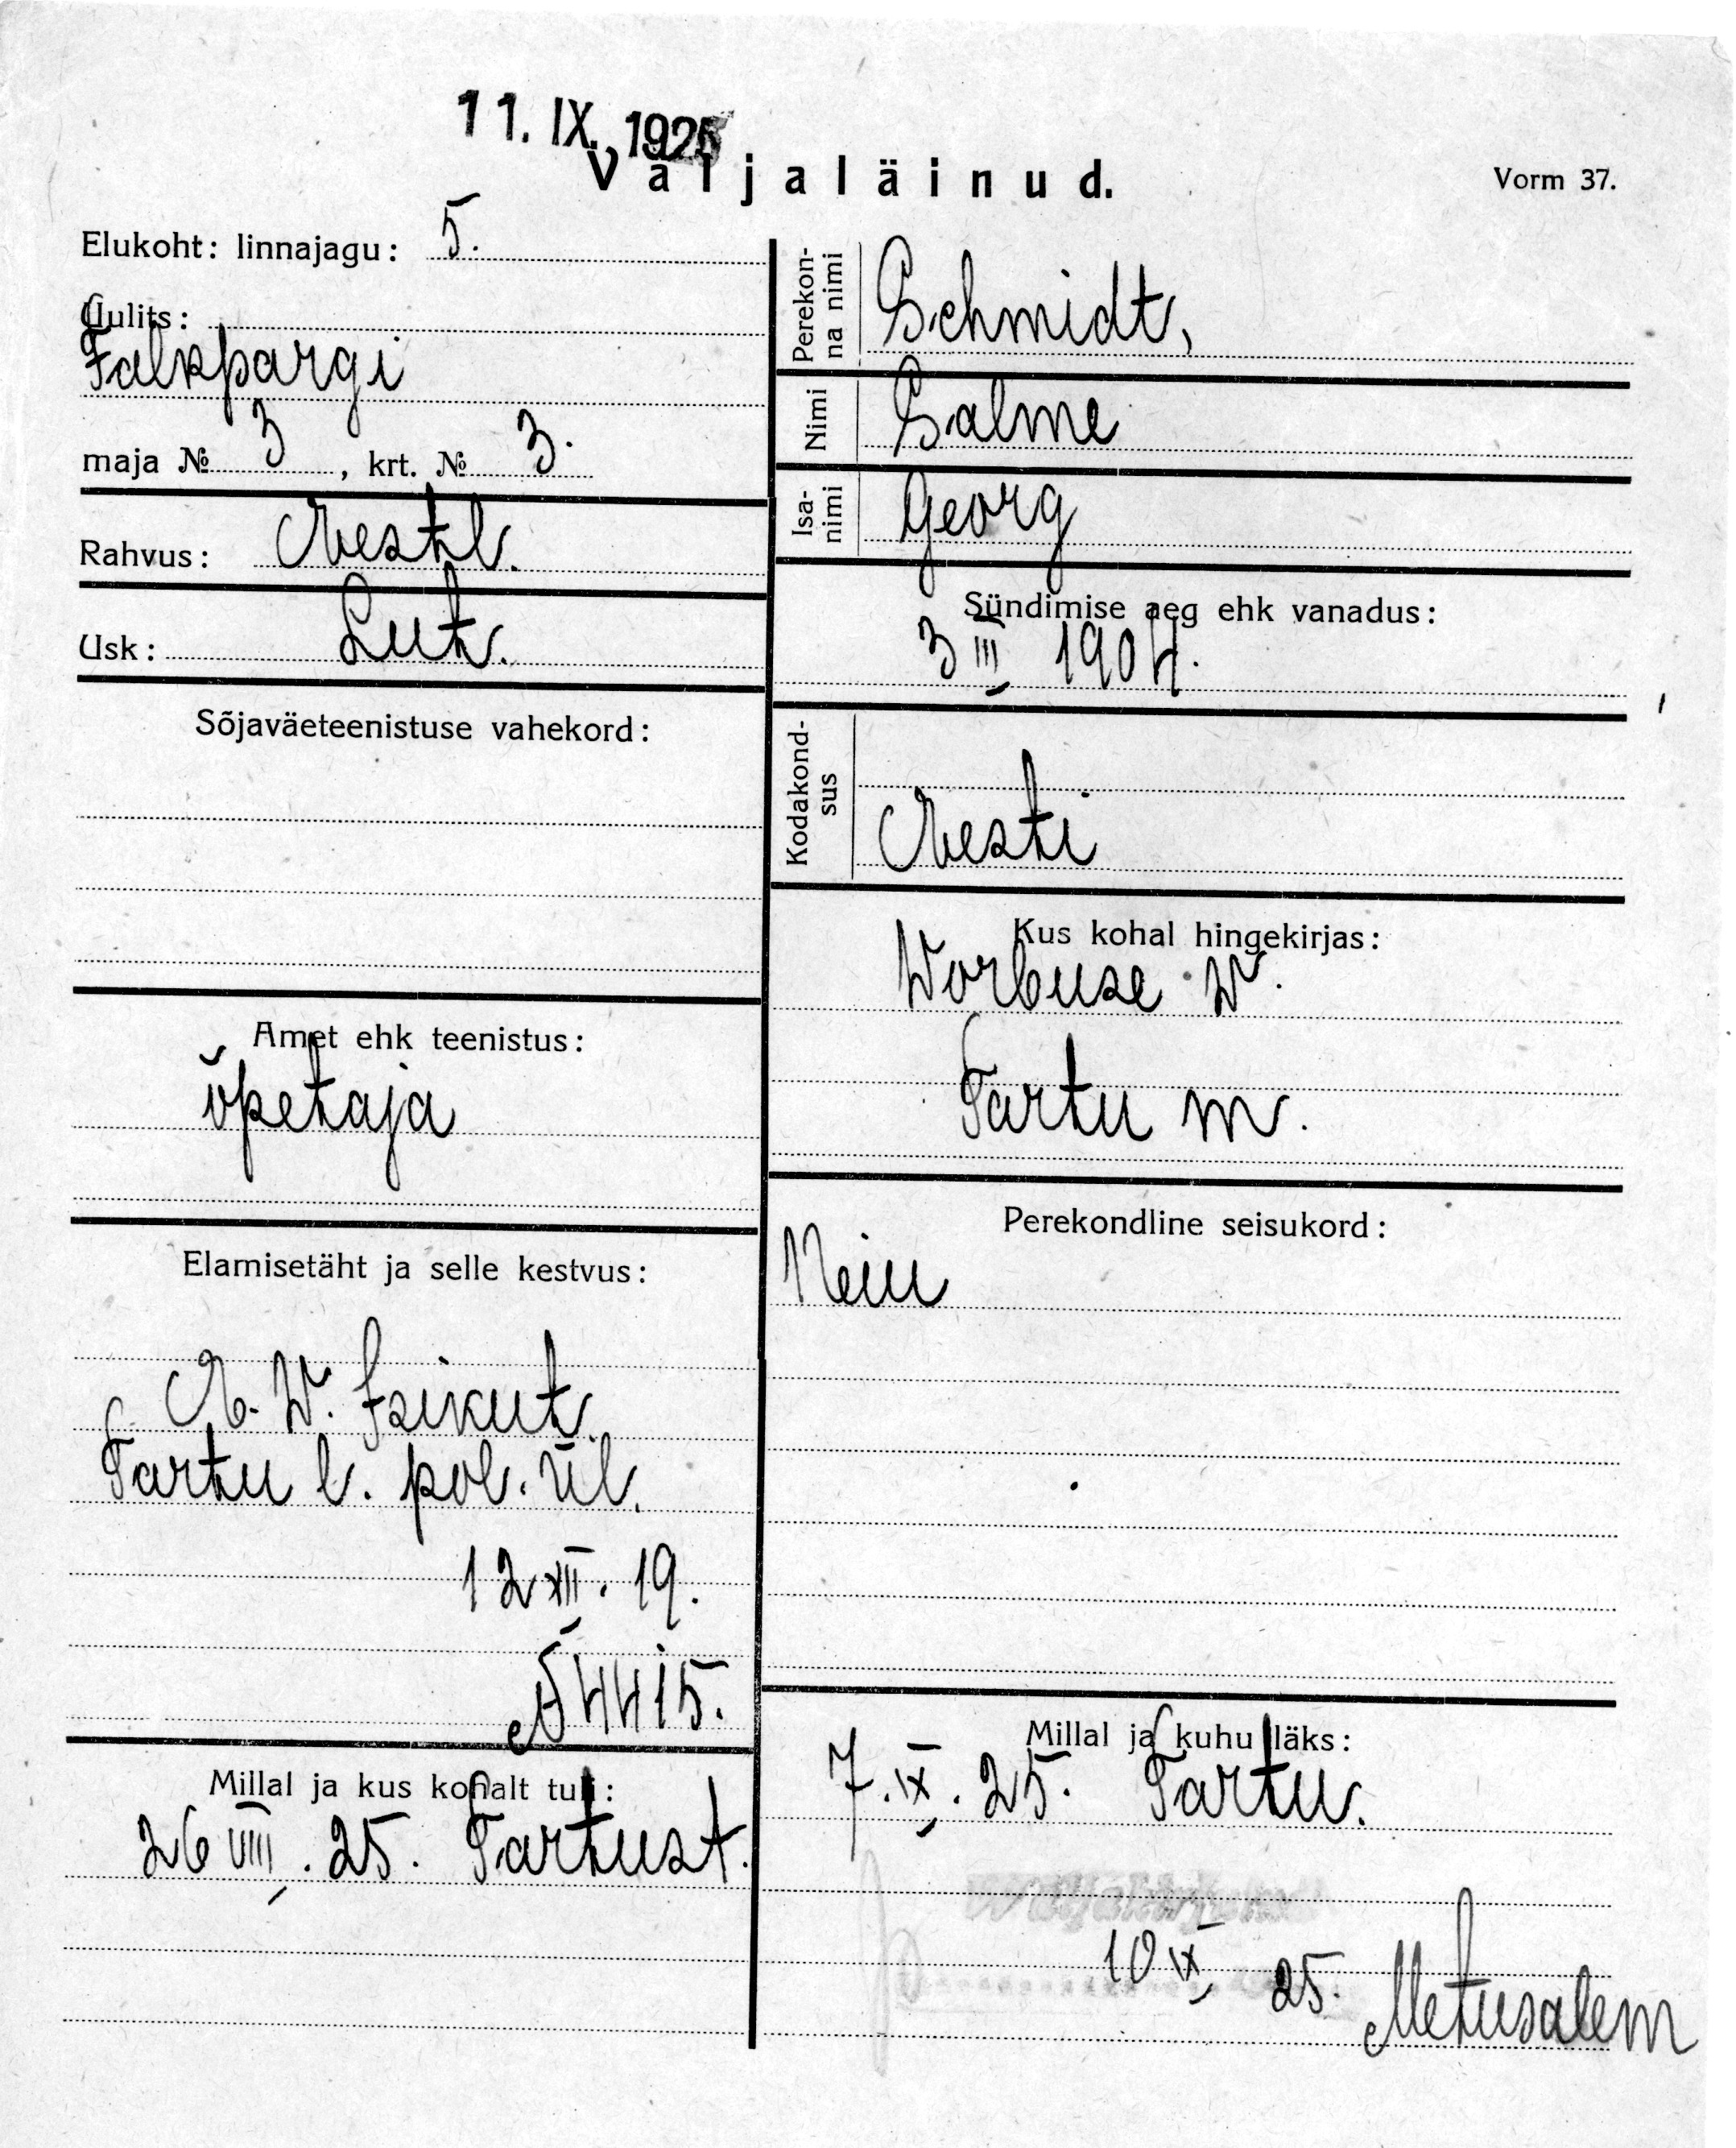 11. IX. 1925
Väljaläinud.
Vorm 37.
Elukoht: linnajagu: 5.
Uulits:
Falkpargi
maja № 3, krt. № 3.
Rahvus: Eestl.
Usk: Lut.
Sõjaväeteenistuse vahekord:
Amet ehk teenistus:
õpetaja
Elamisetäht ja selle kestvus:
E. W. Isikut.
Tartu l. pol. ül.
12 XII. 19.
№ 4415.
Millal ja kus kohalt tuli:
26 VIII. 25. Tartust.
Perekonna nimi Schmidt,
Nimi Salme
Isanimi Georg
Sündimise aeg ehk vanadus:
3 III 1904.
Kodakondsus
Eesti
Kus kohal hingekirjas:
Worbuse W.
Tartu m.
Perekondline seisukord:
Neiu
Millal ja kuhu läks:
7. IX. 25. Tartu.
10 IX 25. Metusalem